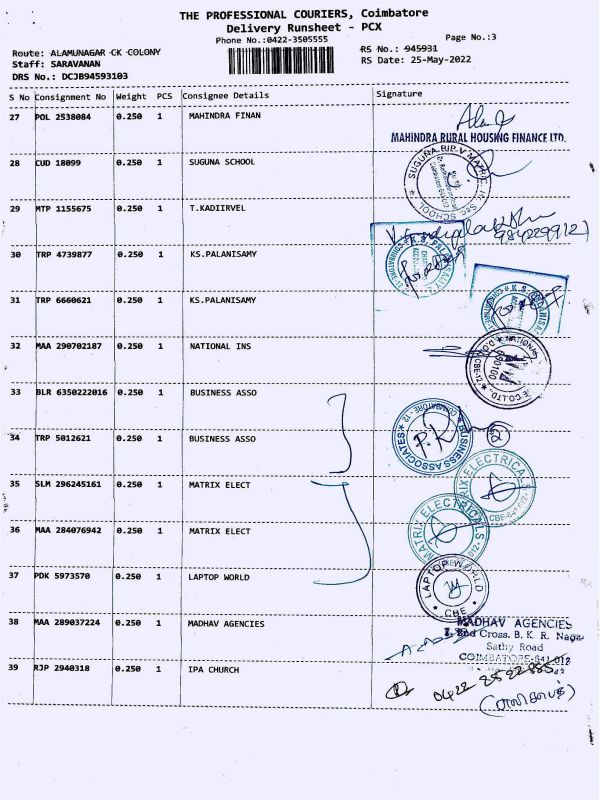 THE PROFESSIONAL COURIERS, Coimbatore
Delivery Runsheet - PCX
Phone No.:0422-3505555
Page No.:3
Route: ALAMUNAGAR CK COLONY
RS No.: 945931
Staff: SARAVANAN
RS Date: 25-May-2022
DRS No.: DCJB94593103
S No Consignment No Weight PCS Consignee Details Signature
27 POL 2538084 0.250 1 MAHINDRA FINAN
MAHINDRA RURAL HOUSING FINANCE LTD.
28 CUD 18099 0.250 1 SUGUNA SCHOOL
SUGUNA RIP V MATRIC. Hr. Sec SCHOOL
29 MTP 1155675 0.250 1 T.KADIIRVEL
9842299121
30 TRP 4739877 0.250 1 KS.PALANISAMY
31 TRP 6660621 0.250 1 KS.PALANISAMY
32 MAA 290702187 0.250 1 NATIONAL INS
33 BLR 6350222016 0.250 1 BUSINESS ASSO
34 TRP 5012621 0.250 1 BUSINESS ASSO
BUSINESS ASSOCIATES
COIMBATORE-12
2
35 SLM 296245161 0.250 1 MATRIX ELECT
MATRIX ELECTRICALS
CBE-641 012
36 MAA 284076942 0.250 1 MATRIX ELECT
MATRIX ELECTRICALS
37 PDK 5973570 0.250 1 LAPTOP WORLD
LAPTOP WORLD
CBE
38 MAA 289037224 0.250 1 MADHAV AGENCIES
MADHAV AGENCIES
2nd Cross. B. K. R. Nagar
Sathy Road
COIMBATORE-641 012
39 RJP 2940318 0.250 1 IPA CHURCH
0422 2522855